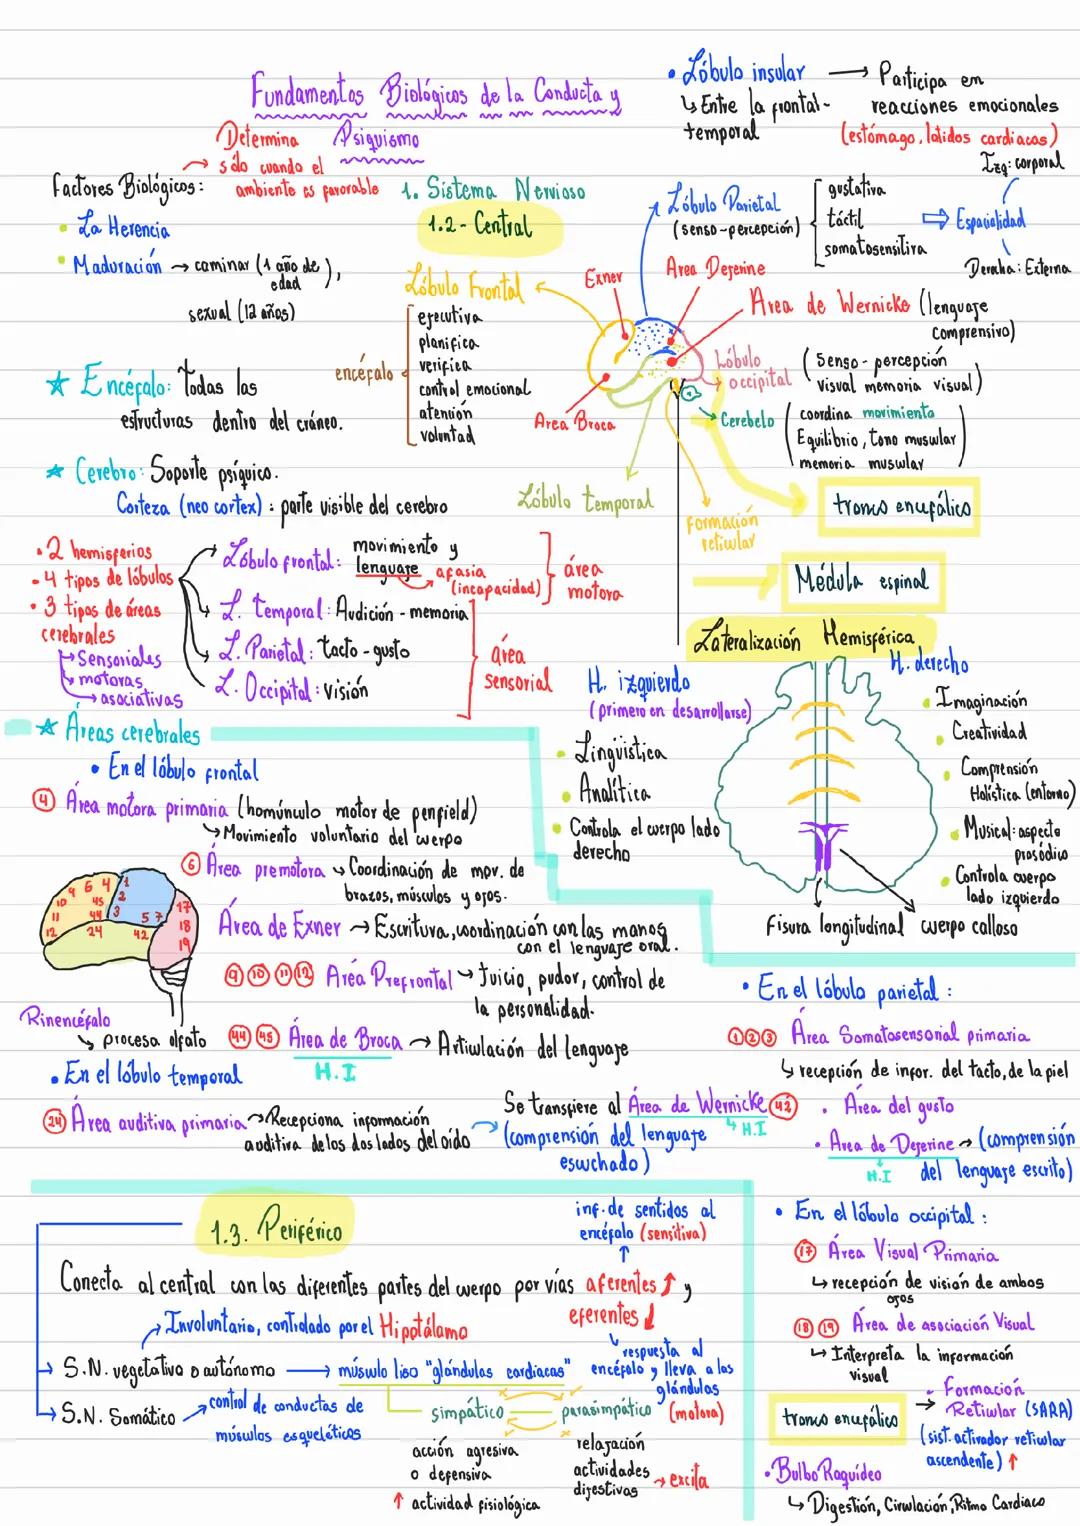 Fundamentos Biológicos de la Conducta y
Psiquismo
Determina
sólo cuando el
ambiente es favorable
Factores Biológicos:
• La Herencia
• Maduración → caminar (1 año de
edad),
sexual (12 años)
★ Encéfalo: Todas las
estructuras dentro del cráneo.
★ Cerebro: Soporte psíquico.
Corteza (neo cortex) : parte visible del cerebro
• 2 hemisferios
• 4 tipos de lóbulos
• 3 tipos de áreas
cerebrales
Sensoriales
motoras
asociativas
Lóbulo frontal: movimiento y
lenguaje → afasia
(incapacidad)
área
motora
L. temporal: Audición - memoria
L. Parietal: tacto - gusto
L. Occipital: visión
área
sensorial
1. Sistema Nervioso
1.2- Central
Lóbulo Frontal
encéfalo
ejecutiva
planifica
verifica
control emocional
atención
voluntad
Exner
Area Dejerine
Area de Wernicke (lenguaje
comprensivo)
Area Broca
Lóbulo temporal
Formación
reticular
• Lóbulo insular → Participa en
reacciones emocionales
(estómago, latidos cardiacos)
↳ Entre la frontal-
temporal
Lóbulo Parietal
(senso-percepción)
gustativa
táctil
somatosensitiva
⇒ Espacialidad
Izq: corporal
Derecha: Externa
Lóbulo
occipital
(Senso-percepción
visual memoria visual)
Cerebelo
(coordina movimiento
Equilibrio, tono muscular
memoria muscular)
tronco encefálico
Médula espinal
Lateralización Hemisférica
H. izquierdo
(primero en desarrollarse)
• Lingüistica
• Analítica
• Controla el cuerpo lado
derecho
H. derecho
• Imaginación
• Creatividad
• Comprensión
Holística (entorno)
• Musical: aspecto
prosódico
• Controla cuerpo
lado izquierdo
Fisura longitudinal
cuerpo calloso
★ Áreas cerebrales
• En el lóbulo frontal
④ Área motora primaria (homúnculo motor de penfield)
↳ Movimiento voluntario del cuerpo
⑥ Área premotora → Coordinación de mov. de
brazos, músculos y ojos.
Área de Exner → Escritura, coordinación con las manos
con el lenguaje oral.
⑨ ⑩ ⑪ ⑫ Área Prefrontal → Juicio, pudor, control de
la personalidad.
㊹ ㊺ Área de Broca → Articulación del lenguaje
H.I
9 6 4 1
10 45 2
11 44 3 5 7 17
12 24 42 18
19
Rinencéfalo
↳ procesa olfato
• En el lóbulo temporal
㉔ Área auditiva primaria → Recepciona información
auditiva de los dos lados del oído
→ Se transfiere al Área de Wernicke ㊷
↳ H.I
(comprensión del lenguaje
escuchado)
• En el lóbulo parietal :
① ② ③ Área Somatosensorial primaria
↳ recepción de infor. del tacto, de la piel
• Área del gusto
• Área de Dejerine → (comprensión
del lenguaje escrito)
H.I
• En el lóbulo occipital :
⑰ Área Visual Primaria
↳ recepción de visión de ambos
ojos
⑱ ⑲ Área de asociación Visual
↳ Interpreta la información
visual
tronco encefálico →
- Formación
Reticular (SARA)
(sist. activador reticular
ascendente) ↑
• Bulbo Raquídeo
↳ Digestión, Circulación, Ritmo Cardiaco
1.3. Periférico
Conecta al central con las diferentes partes del cuerpo por vías aferentes ↑ y
eferentes ↓
inf. de sentidos al
encéfalo (sensitiva)
respuesta al
encéfalo y lleva a las
glándulas
(motora)
→ Involuntario, controlado por el Hipotálamo
→ S.N. vegetativo o autónomo → músculo liso "glándulas cardiacas"
→ S.N. Somático → control de conductas de
músculos esqueléticos
simpático
parasimpático
acción agresiva
o defensiva
↑ actividad fisiológica
relajación
actividades
digestivas → excita